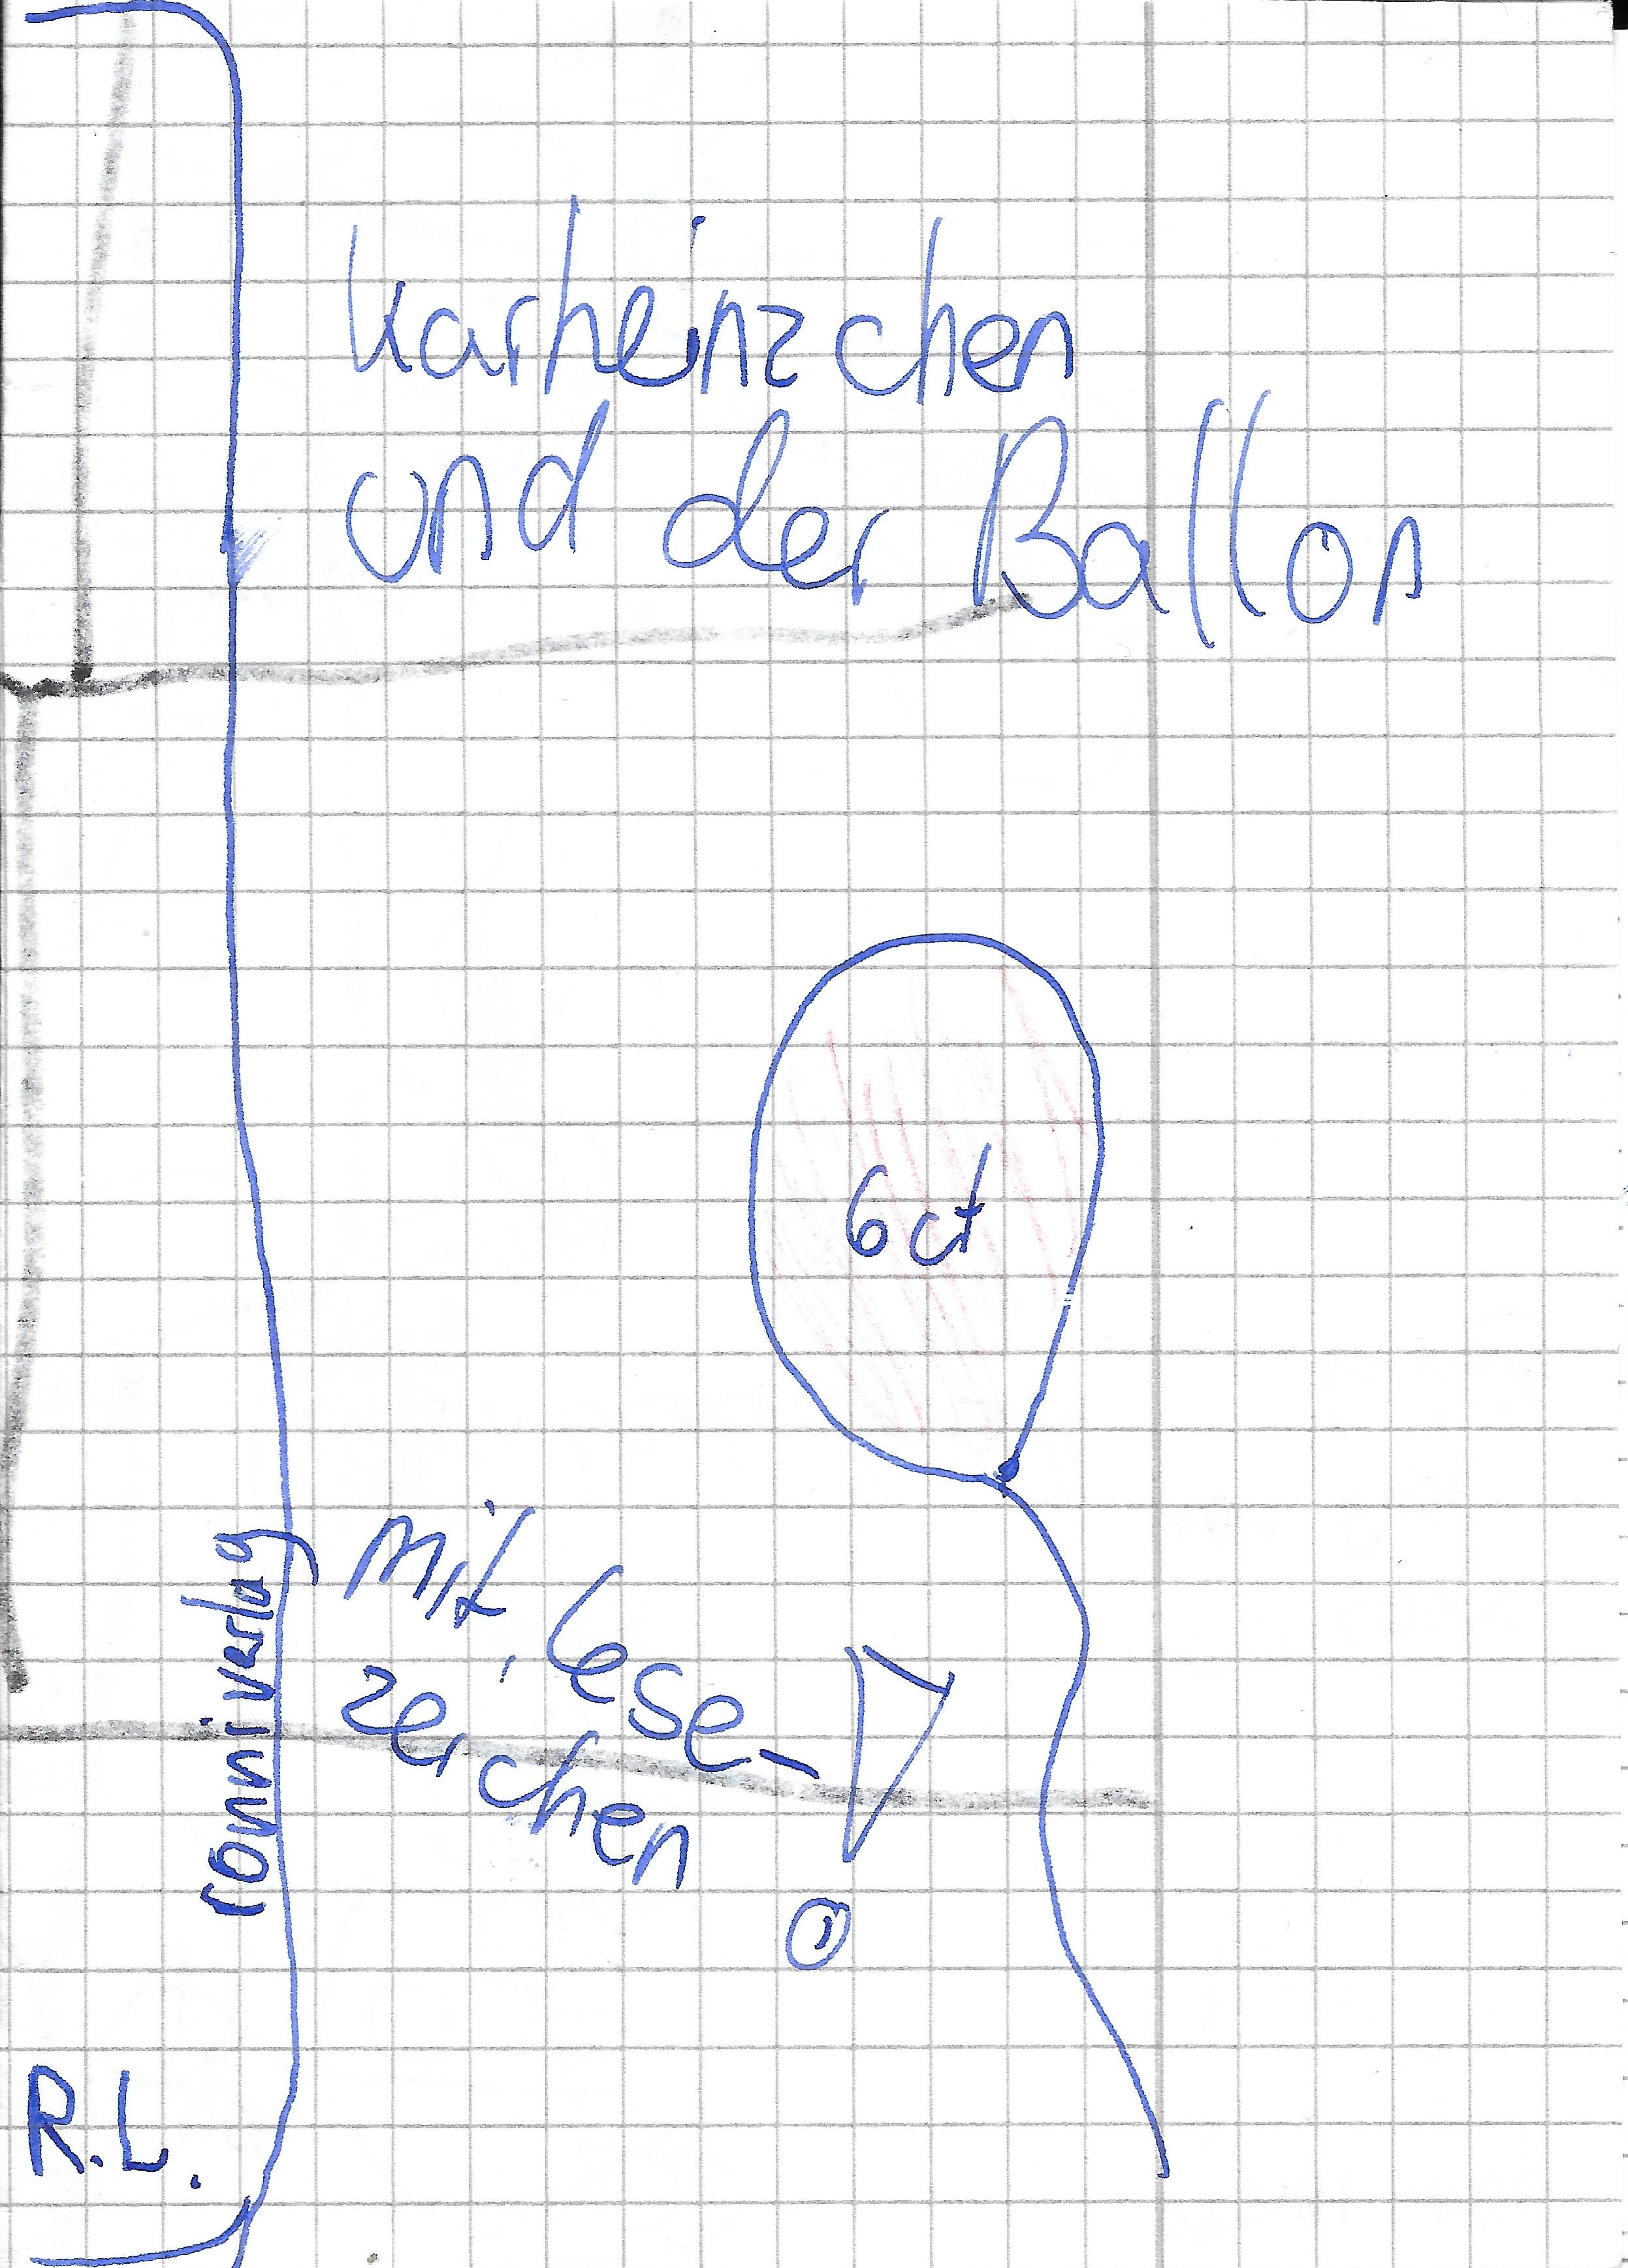 Karheinzchen
und der Ballon
6 ct
Mit Lese-
zeichen
ronniverlag
R.L.